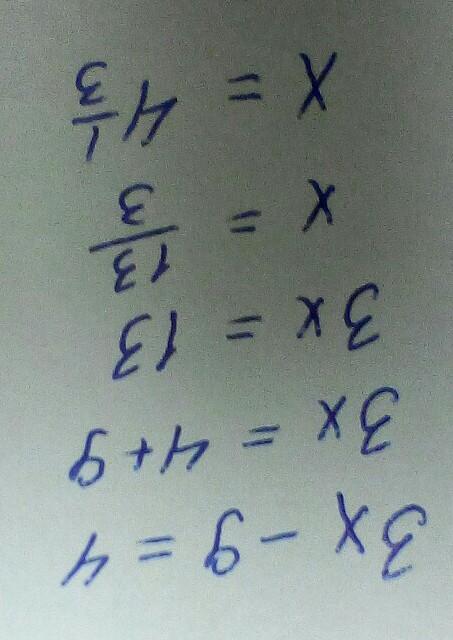 3x - 9 = 4
3x = 4+9
3x = 13
x = 13/3
x = 4 1/3